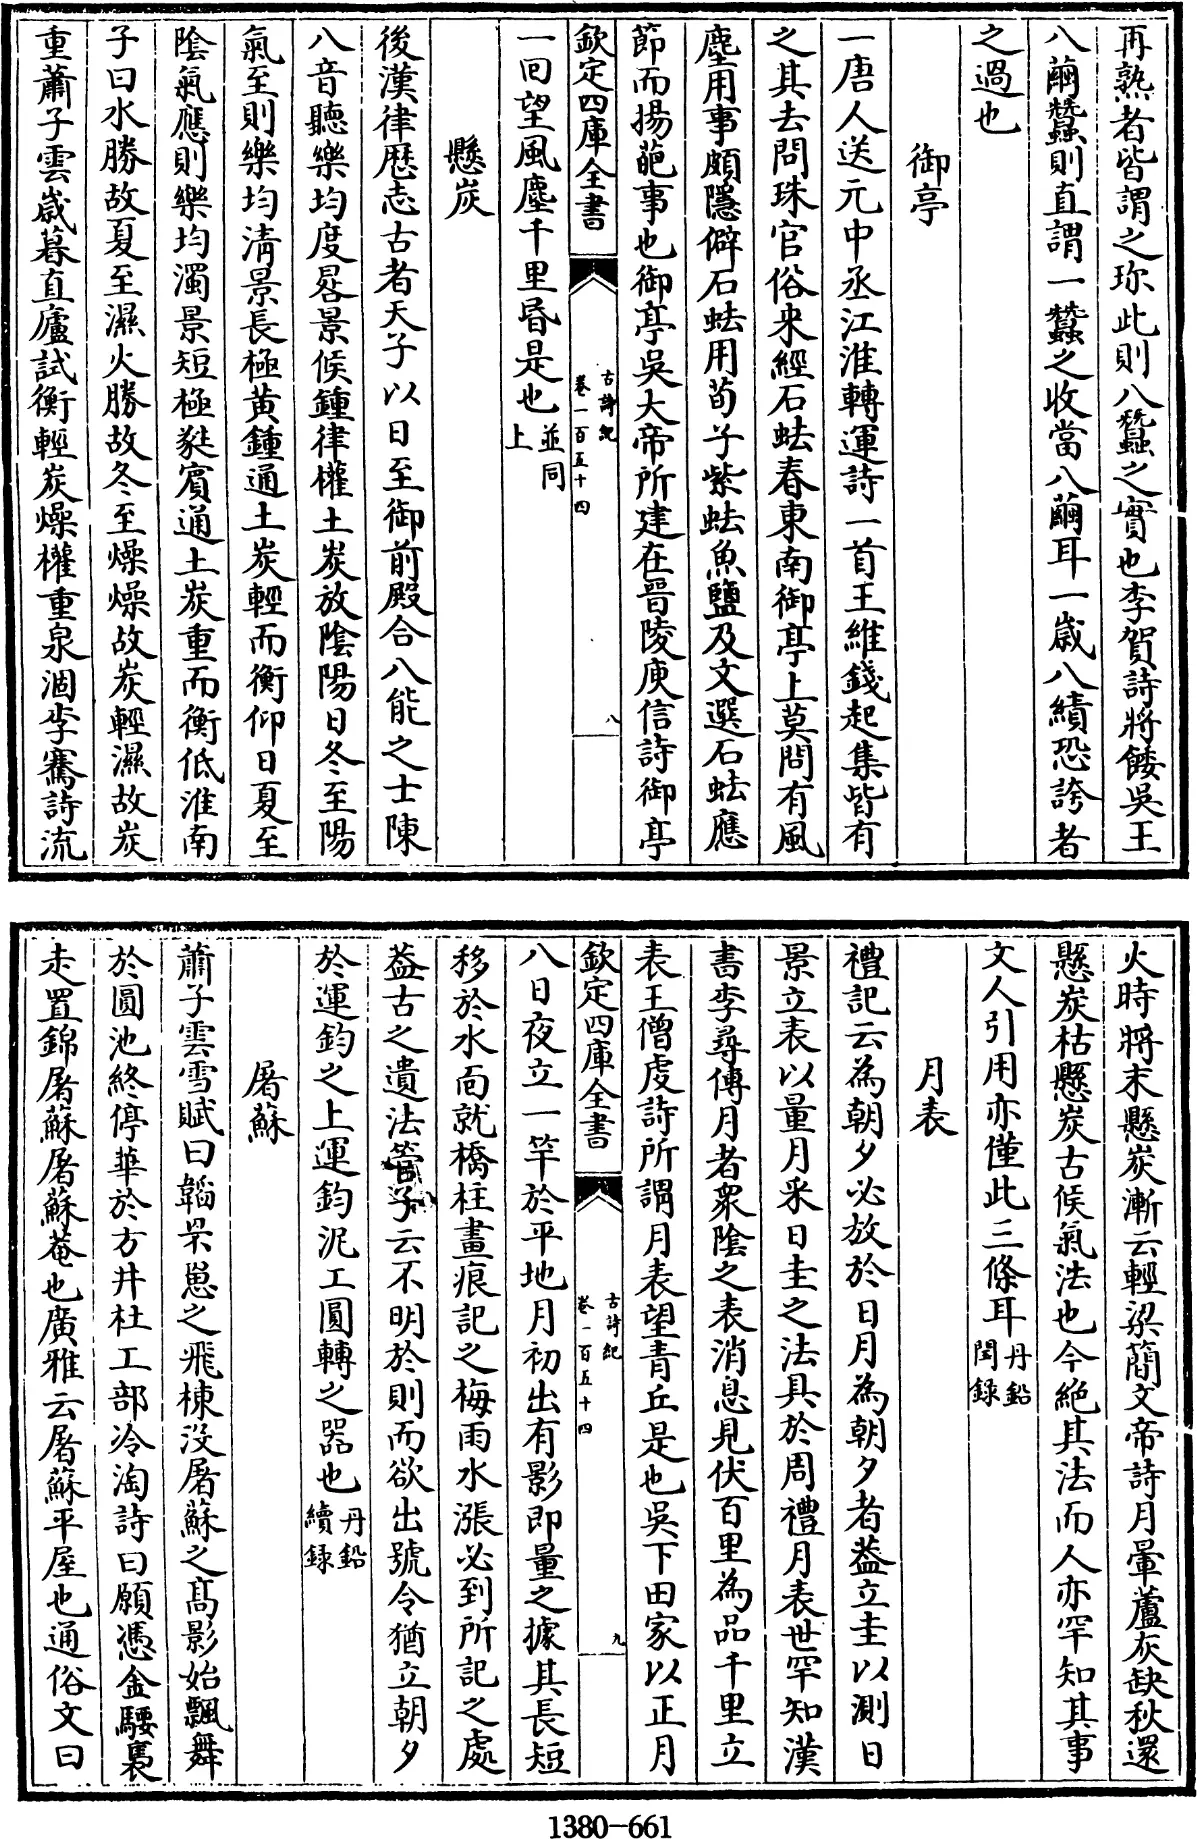 再熟者皆謂之珎此則八蠶之實也李賀詩將餧吳王
八繭蠶則直謂一蠶之收當八繭耳一歲八績恐誇者
之過也
御亭
一唐人送元中丞江淮轉運詩一首王維錢起集皆有
之其去問珠官俗来經石蚨春東南御亭上莫問有風
塵用事頗隱僻石蚨用荀子紫蚨魚鹽及文選石蚨應
節而揚葩事也御亭吳大帝所建在晉陵庾信詩御亭
欽定四庫全書
古詩紀
卷一百五十四
八
一囘望風塵千里昏是也並同上
懸炭
後漢律歴志古者天子以日至御前殿合八能之士陳
八音聽樂均度晷景候鍾律權土炭放陰陽日冬至陽
氣至則樂均清景長極黄鍾通土炭輕而衡仰日夏至
陰氣應則樂均濁景短極蕤賓通土炭重而衡低淮南
子曰水勝故夏至濕火勝故冬至燥燥故炭輕濕故炭
重蕭子雲歲暮直廬試衡輕炭燥權重泉涸李騫詩流
火時將末懸炭漸云輕梁簡文帝詩月暈蘆灰缺秋還
懸炭枯懸炭古候氣法也今絶其法而人亦罕知其事
文人引用亦僅此三條耳丹鉛閏録
月表
禮記云為朝夕必放於日月為朝夕者葢立圭以測日
景立表以量月采日圭之法具於周禮月表世罕知漢
書李尋傳月者衆陰之表消息見伏百里為品千里立
表王僧虔詩所謂月表望青丘是也吳下田家以正月
欽定四庫全書
古詩紀
卷一百五十四
九
八日夜立一竿於平地月初出有影即量之據其長短
移於水面就橋柱畫痕記之梅雨水漲必到所記之處
葢古之遺法管子云不明於則而欲出號令猶立朝夕
於運鈞之上運鈞泥工圓轉之器也丹鉛續録
屠蘇
蕭子雲雪賦曰韜罘罳之飛棟没屠蘇之髙影始飄舞
於圓池終停華於方井杜工部冷淘詩曰願憑金騕褭
走置錦屠蘇屠蘇菴也廣雅云屠蘇平屋也通俗文曰
1380-661